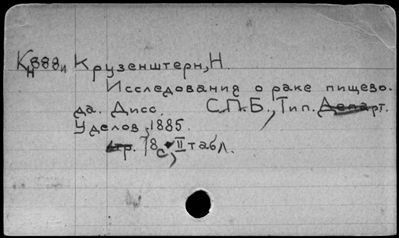 Крузенштерн, Н.
Исследования о раке пищево.
да. Дисс. С.П.Б., Тип. Департ.
Уделов, 1885.
78с, II табл.